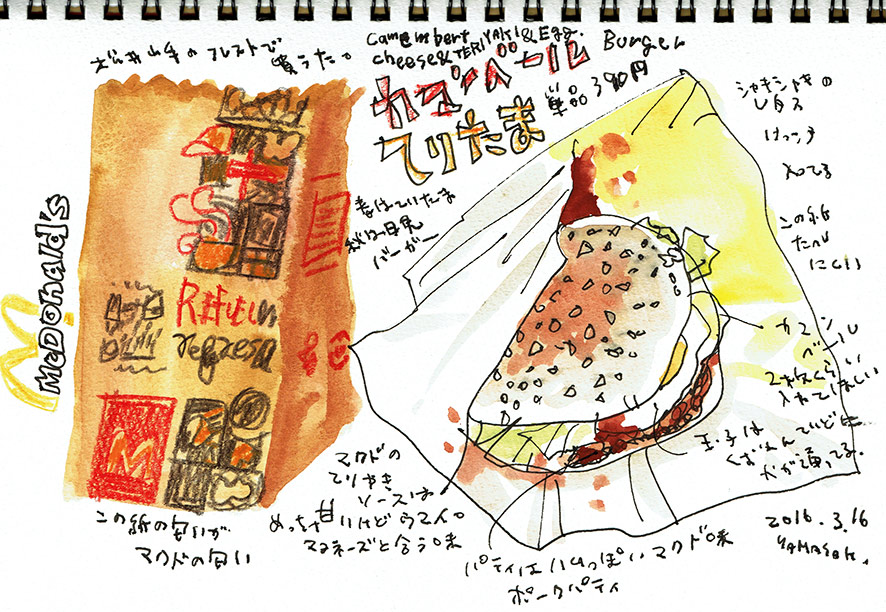 買うた。
Camembert
cheese&TERIYAKI&Egg.
Burger
カマンベール
てりたま
単品 390円
春はてりたま
秋は月見
バーガー
シャキシャキの
レタス
けっこう
入ってる
この紙
たべ
にくい
カマン
ベール
2枚くらい
入れてほしい
玉子は
火が通ってる。
McDonald's
M
Return
regresa
M
この紙の匂いが
マクドの匂い
マクドの
てりやき
ソースは
めっちゃ甘いけどウマイ。
マヨネーズと合う味
パティはハムっぽいマクド味
ポークパティ
2016.3.16